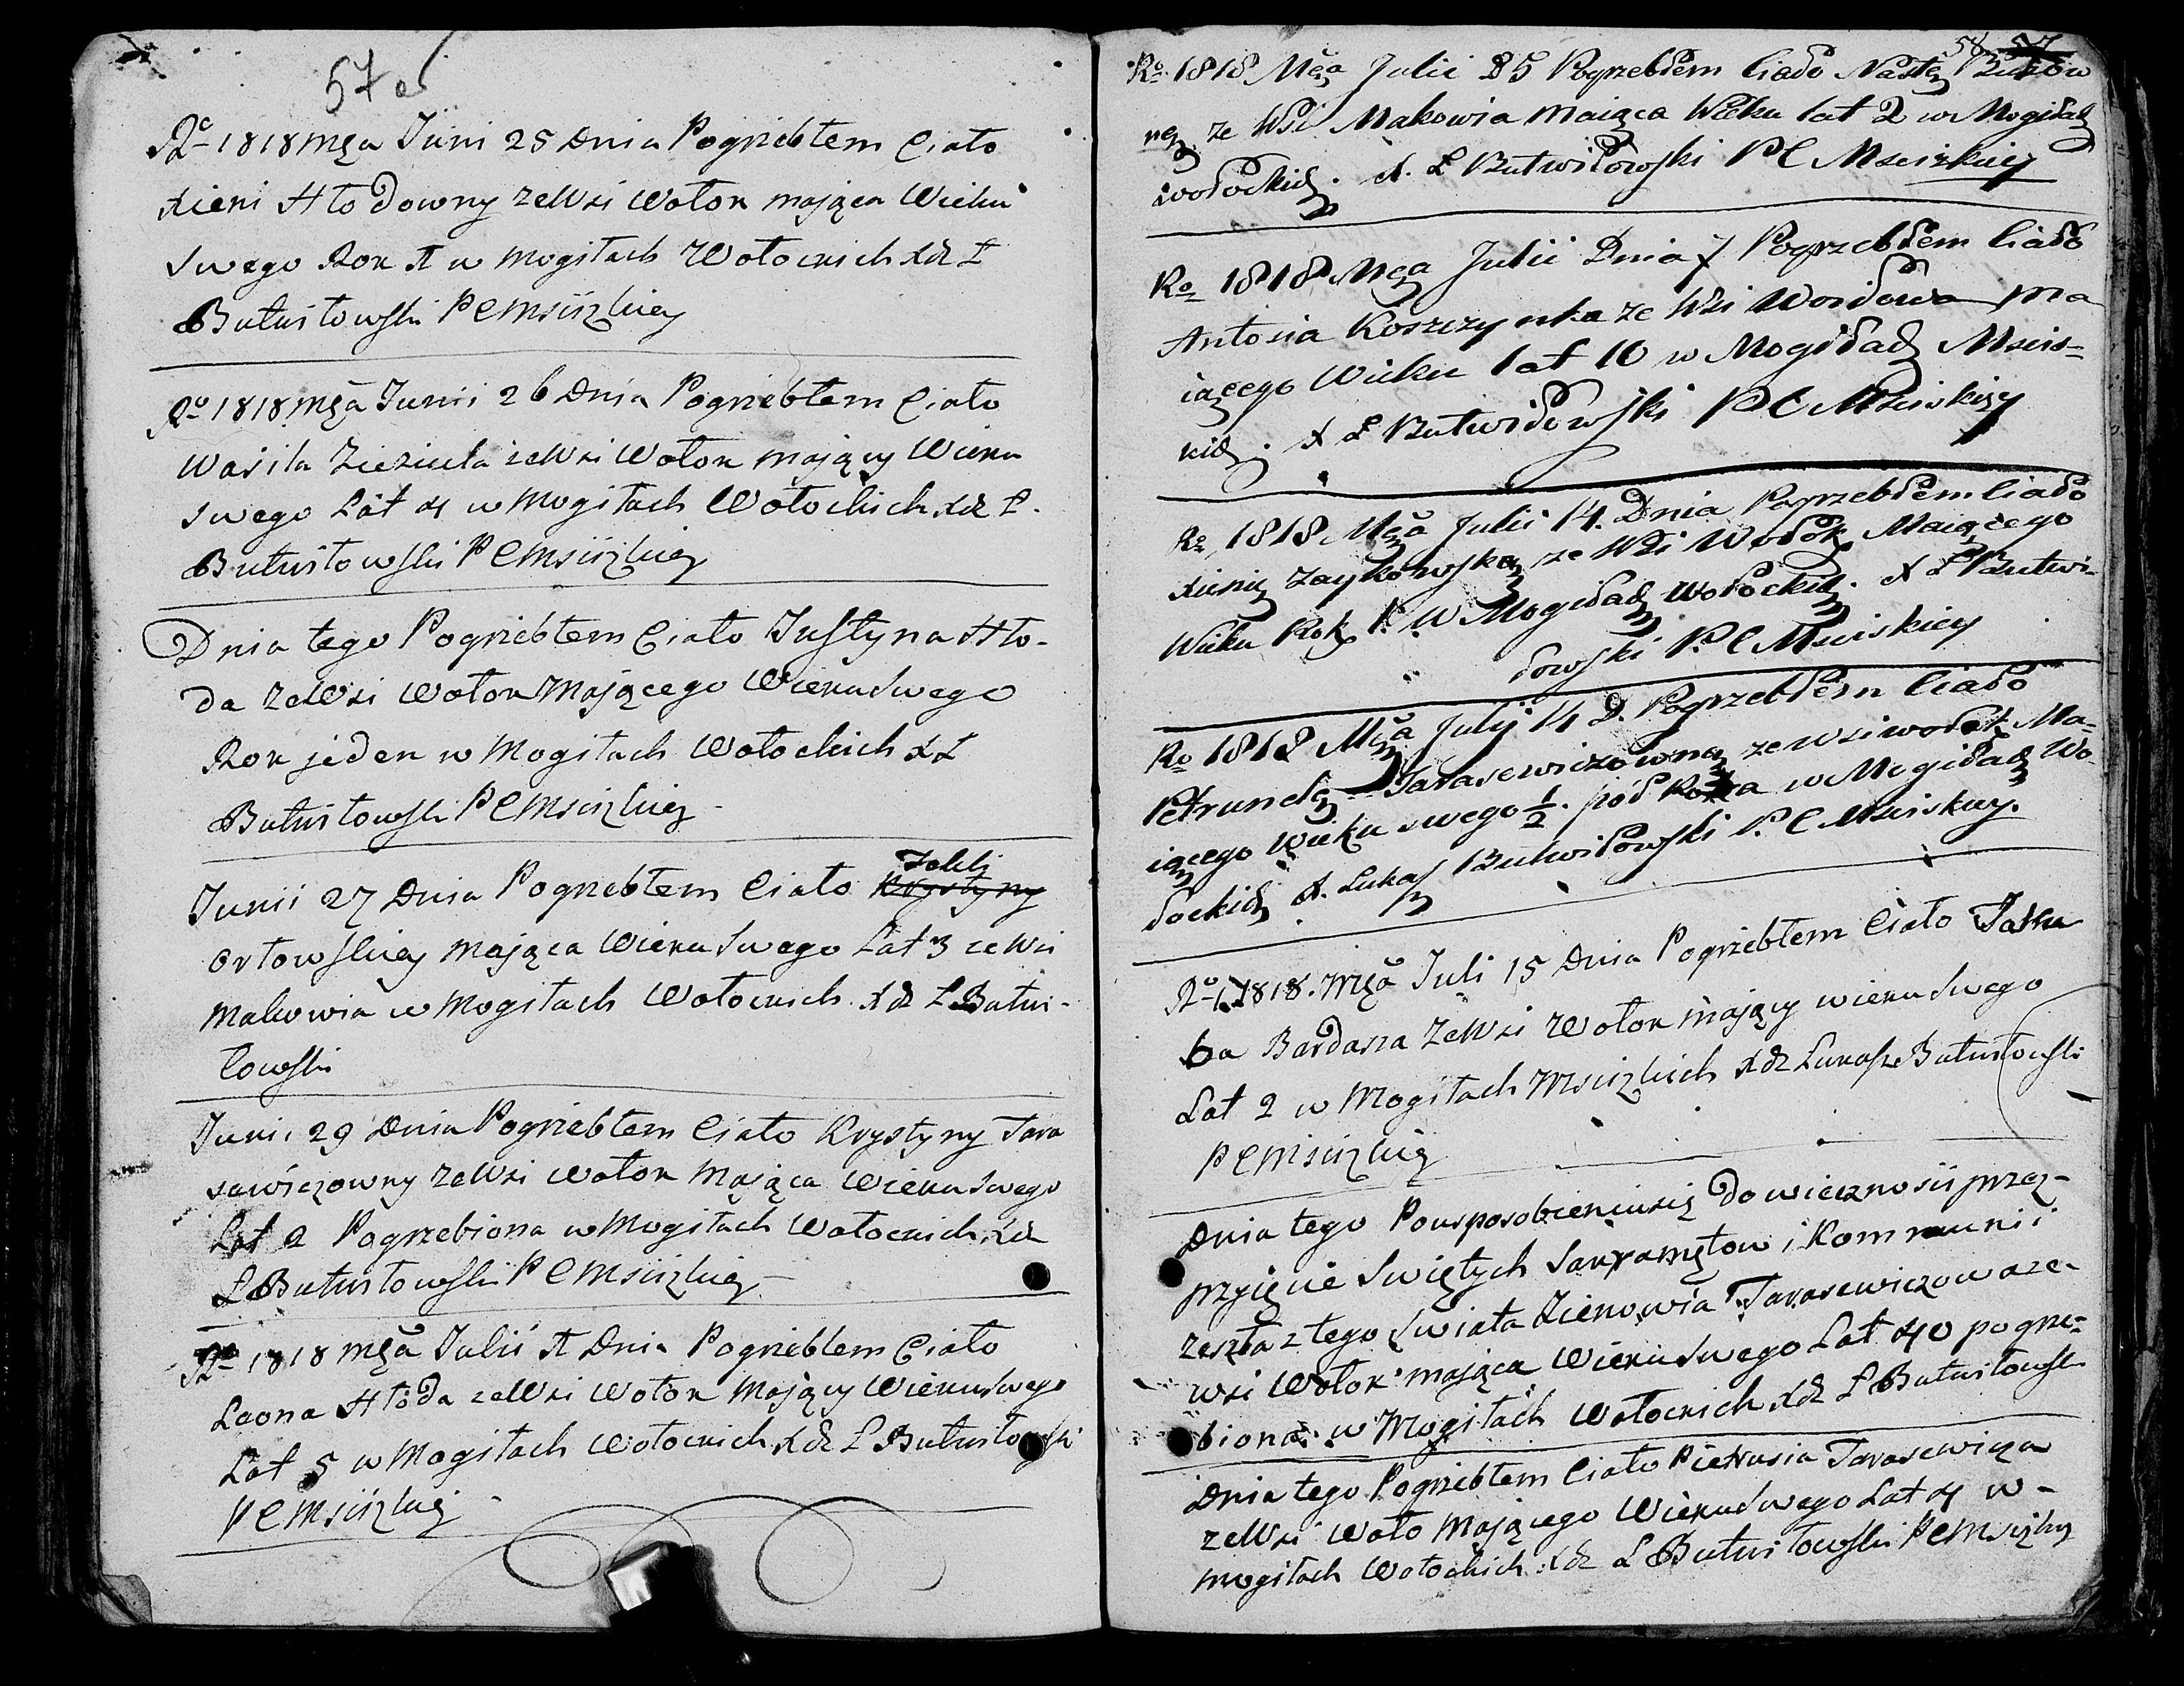 57 об
Ro 1818 Mca Juni 25 Dnia Pogrzebłem Ciało
Xieni Hłodowny ze Wsi Wołok mająca Wieku
Swego Rok 1 w Mogiłach Wołockich Xdz Ł
Butwiłowski P C Mściżkiey
Ro 1818 Mca Junii 26 Dnia Pogrzebłem Ciało
Wasila Zieziula ze Wsi Wołok mający Wieku
Swego Lat 4 w Mogiłach Wołockich Xdz Ł.
Butwiłowski P C Mściżkiey
Dnia tego Pogrzebłem Ciało Justyna Hło-
da ze Wsi Wołok Mającego Wieku Swego
Rok jeden w Mogiłach Wołockich X Ł
Butwiłowski P C Mściżkiey
Zofij
Junii 27 Dnia Pogrzebłem Ciało Krystyny
Orłowskiey mająca Wieku Swego Lat 3 ze Wsi
Makowia w Mogiłach Wołockich Xdz Ł Butwi-
łowski
Juni 29 Dnia Pogrzebłem Ciało Krystyny Tara
sewiczowny ze Wsi Wołok Mająca Wieku Swego
Lat 2 Pogrzebiona w Mogiłach Wołockich Xdz
Ł Butwiłowski P C Mściżkiey
Ro 1818 Mca Julii 1 Dnia Pogrzebłem Ciało
Laona Hłoda ze Wsi Wołok Mający Wieku Swego
Lat 5 w Mogiłach Wołockich Xdz Ł Butwiłowski
P C Mściżkiey
58 57
Ro 1818 Mca Julii D 5 Pogrzebłem Ciało Nastę
ney ze Wsi Makowia maiąca Wieku lat 2 w Mogiłach
Wołockich. X. Ł Butwiłowski P C Mscizkiey
Ro 1818 Mca Julii Dnia 7 Pogrzebłem Ciało
Antosia Koszczynka ze Wsi Woiłowa ma
iącego Wieku lat 10 w Mogiłach Mscis=
kich. X Ł Butwiłowski P C Msciskiey
Ro 1818 Mca Julii 14. Dnia Pogrzebłem Ciało
Xieni Zaykowskey ze Wsi Wołok Maiącego
Wieku Rok 1. W Mogiłach Wołockich. X Ł Butwi-
łowski P. C Msciskiey
Ro 1818 Mca Julij 14 D. Pogrzebłem Ciało
Petruneły Tarasewiczowney ze wsi wołok Ma=
iącego wieku swego 1/2. pół Roka w Mogiłach Wo-
łockich X. Łukasz Butwiłowski P. C Msciskiey.
Ro 1818. Mca Juli 15 Dnia Pogrzebłem Ciało Jaku
ba Bardasza ze Wsi Wołok mający wieku Swego
Lat 2 w Mogiłach Mściżkich Xdz Łukasz Butwiłowski
P C Mściżkiey
Dnia tego Po usposobieniu się do wieczności przez-
przyięcie Swiętych Sakramętow i Kommunii
zeszła z tego Swiata Zienowia Tarasewiczowa ze-
wsi Wołok mająca Wieku Swego Lat 40 pogrze-
biona w Mogiłach Wołockich Xdz Ł Butwiłowski
Dnia tego Pogrzebłem Ciało Pietrusia Tarasewicza
ze Wsi Woło Mającego Wieku Swego Lat 4 w-
mogiłach Wołockich Xdz Ł Butwiłowski P C Mściżkiey